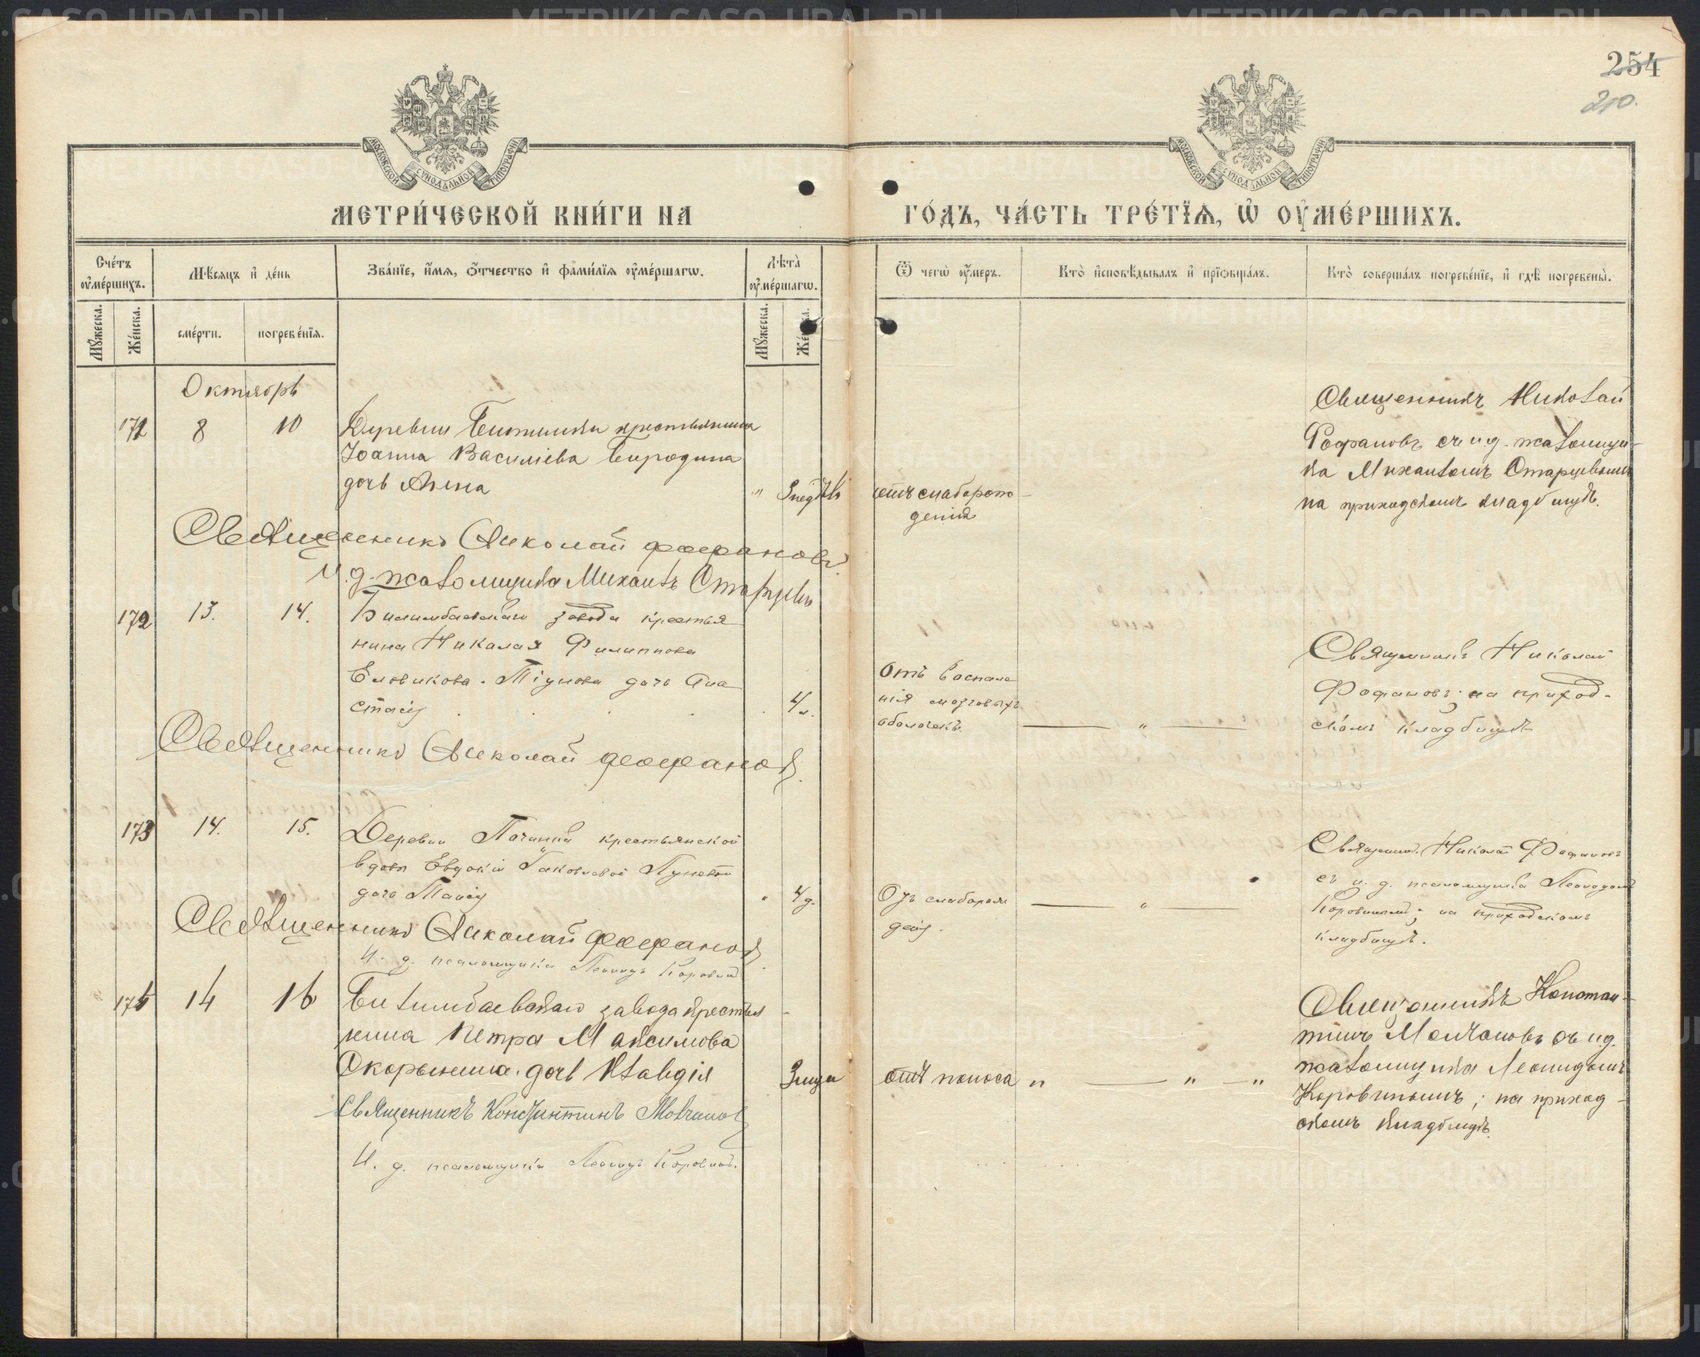 254
210.
МОСКОВСКОЙ СУНОДАЛЬНОЙ ТИПОГРАФІИ
МОСКОВСКОЙ СУНОДАЛЬНОЙ ТИПОГРАФІИ
МЕТРИ́ЧЕСКОЙ КНИ́ГИ НА
ГО́ДЪ, ЧА́СТЬ ТРЕ́ТЇѦ, Ѡ҆ ОУ҆МЕ́РШИХЪ.
Сче́тъ оу҆ме́ршихъ.
Мѣсяцъ и҆ де́нь
Зва́нїе, и҆́мѧ, ѻ҆́тчество и҆ фами́лїѧ оу҆ме́ршагѡ.
Лѣта̀ оу҆ме́ршагѡ.
Ѿ чегѡ̀ оу҆́меръ.
Кто̀ и҆сповѣ́дывалъ и҆ прїѡбща́лъ.
Кто̀ соверша́лъ погребе́нїе, и҆ гдѣ̀ погребены̀.
Мꙋ́жеска.
Же́нска.
сме́рти.
погребе́нїѧ.
Мꙋ́жеска.
Же́нска.
Октябрь
171 8 10 Деревни крестьянина
Іоанна Васильева Бирюдина
дочь Анна
" 3 недѣль
отъ слаборож-
денія
Священникъ Николай
Фофановъ съ и. д. псаломщи-
ка Михаиломъ Старцевымъ
на приходскомъ кладбищѣ.
Священникъ Николай Фофановъ.
И. д. псаломщика Михаилъ Старцевъ
172 13. 14. Билимбаевскаго завода крестья
нина Николая Филиппова
Еловикова-Тіунова дочь Ана
стасія
4 м.
Отъ воспале
нія мозговыхъ
оболочекъ.
"
Священникъ Николай
Фофановъ; на приход-
скомъ кладбищѣ
Священникъ Николай Фофановъ.
173 14. 15. Деревни Починка крестьянской
вдовы Евдокіи Яковлевой
дочь Таисія
" 4 д.
Отъ слаборож
денія.
"
Священник. Николай Фофановъ
съ и. д. псаломщика Леонидомъ
Коровинымъ; на приходскомъ
кладбищѣ.
Священникъ Николай Фофановъ.
И. д. псаломщика Леонидъ Коровинъ
174 14 16 Билимбаевскаго завода крестья-
нина Петра Максимова
Скорынина дочь Клавдія
3 мѣсяца
отъ поноса
" " "
Священникъ Констан-
тинъ Молчановъ съ и. д.
псаломщика Леонидомъ
Коровинымъ; на приход-
скомъ кладбищѣ.
Священникъ Константинъ Молчановъ
И. д. псаломщика Леонидъ Коровинъ.
METRIKI.GASO-URAL.RU